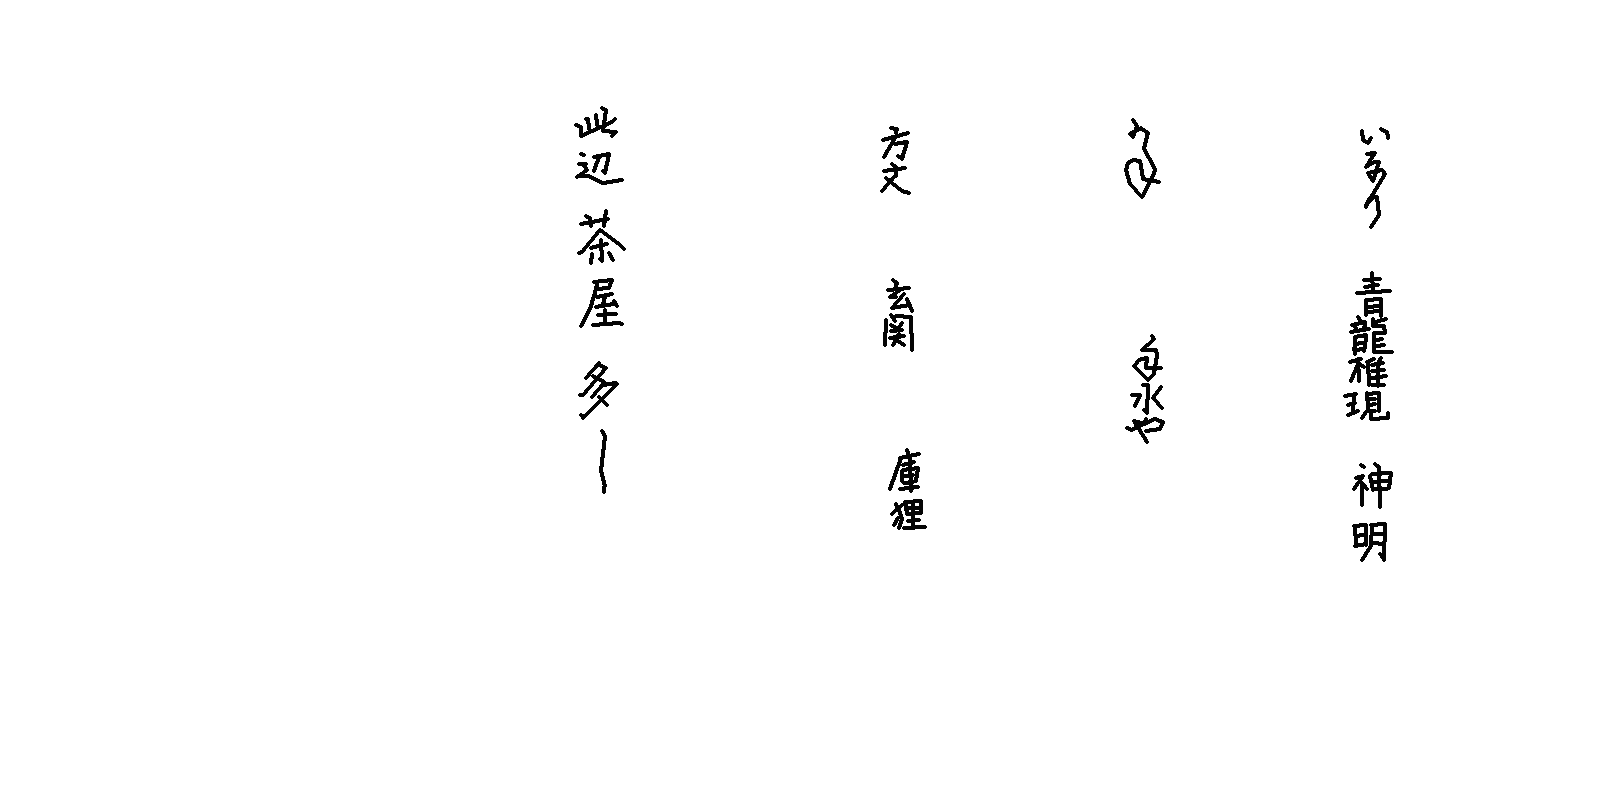 いなり 青龍権現 神明
手水や
方丈 玄関 庫狸
此辺茶屋多し